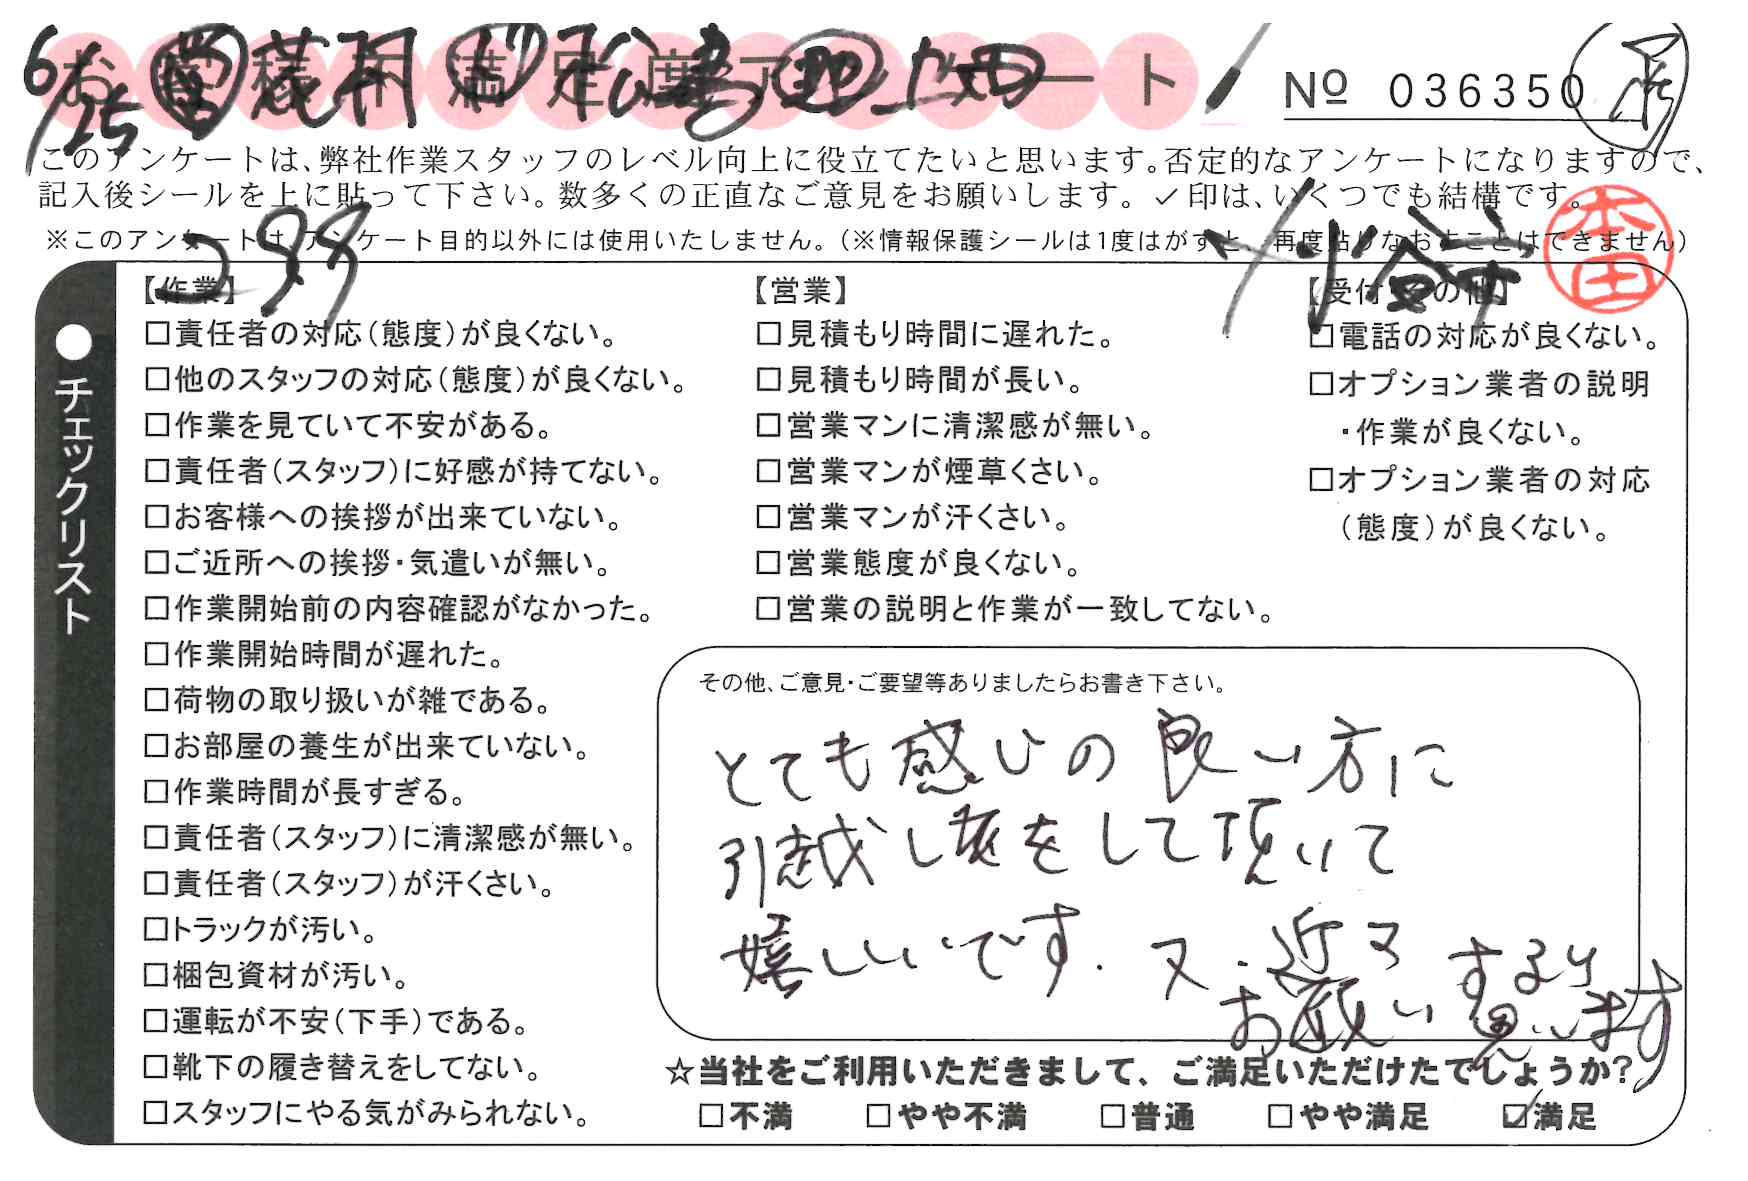 お客様満足度アンケート
6/25 営
№ 036350
このアンケートは、弊社作業スタッフのレベル向上に役立てたいと思います。否定的なアンケートになりますので、
記入後シールを上に貼って下さい。数多くの正直なご意見をお願いします。✓印は、いくつでも結構です。
※このアンケートは、アンケート目的以外には使用いたしません。(※情報保護シールは1度はがすと、再度貼りなおすことはできません)
299
本田
●チェックリスト
【作業】
□責任者の対応(態度)が良くない。
□他のスタッフの対応(態度)が良くない。
□作業を見ていて不安がある。
□責任者(スタッフ)に好感が持てない。
□お客様への挨拶が出来ていない。
□ご近所への挨拶・気遣いが無い。
□作業開始前の内容確認がなかった。
□作業開始時間が遅れた。
□荷物の取り扱いが雑である。
□お部屋の養生が出来ていない。
□作業時間が長すぎる。
□責任者(スタッフ)に清潔感が無い。
□責任者(スタッフ)が汗くさい。
□トラックが汚い。
□梱包資材が汚い。
□運転が不安(下手)である。
□靴下の履き替えをしてない。
□スタッフにやる気がみられない。
【営業】
□見積もり時間に遅れた。
□見積もり時間が長い。
□営業マンに清潔感が無い。
□営業マンが煙草くさい。
□営業マンが汗くさい。
□営業態度が良くない。
□営業の説明と作業が一致してない。
【受付・その他】
□電話の対応が良くない。
□オプション業者の説明
・作業が良くない。
□オプション業者の対応
(態度)が良くない。
その他、ご意見・ご要望等ありましたらお書き下さい。
とても感じの良い方に
引越し業をして頂いて
嬉しいです. 又、近々
お願いすると思います
☆当社をご利用いただきまして、ご満足いただけたでしょうか?
□不満 □やや不満 □普通 □やや満足 ☑満足